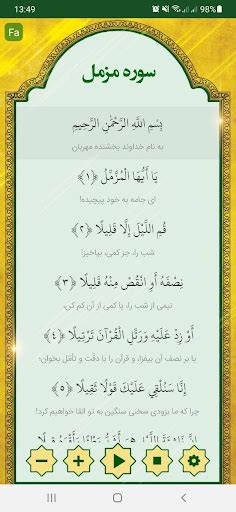 13:49
98%
Fa
سوره مزمل
بِسْمِ اللَّهِ الرَّحْمَٰنِ الرَّحِيمِ
به نام خداوند بخشنده مهربان
يَا أَيُّهَا الْمُزَّمِّلُ ﴿١﴾
ای جامه به خود پیچیده!
قُمِ اللَّيْلَ إِلَّا قَلِيلًا ﴿٢﴾
شب را، جز کمی، بپاخیز!
نِصْفَهُ أَوِ انْقُصْ مِنْهُ قَلِيلًا ﴿٣﴾
نیمی از شب را، یا کمی از آن کم کن،
أَوْ زِدْ عَلَيْهِ وَرَتِّلِ الْقُرْآنَ تَرْتِيلًا ﴿٤﴾
یا بر نصف آن بیفزا، و قرآن را با دقّت و تأمّل بخوان؛
إِنَّا سَنُلْقِي عَلَيْكَ قَوْلًا ثَقِيلًا ﴿٥﴾
چرا که ما بزودی سخنی سنگین به تو القا خواهیم کرد!